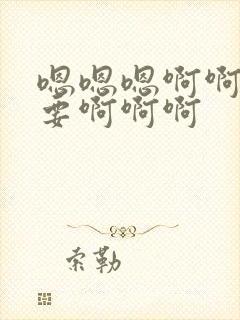 嗯嗯嗯啊啊
要啊啊啊
索勒